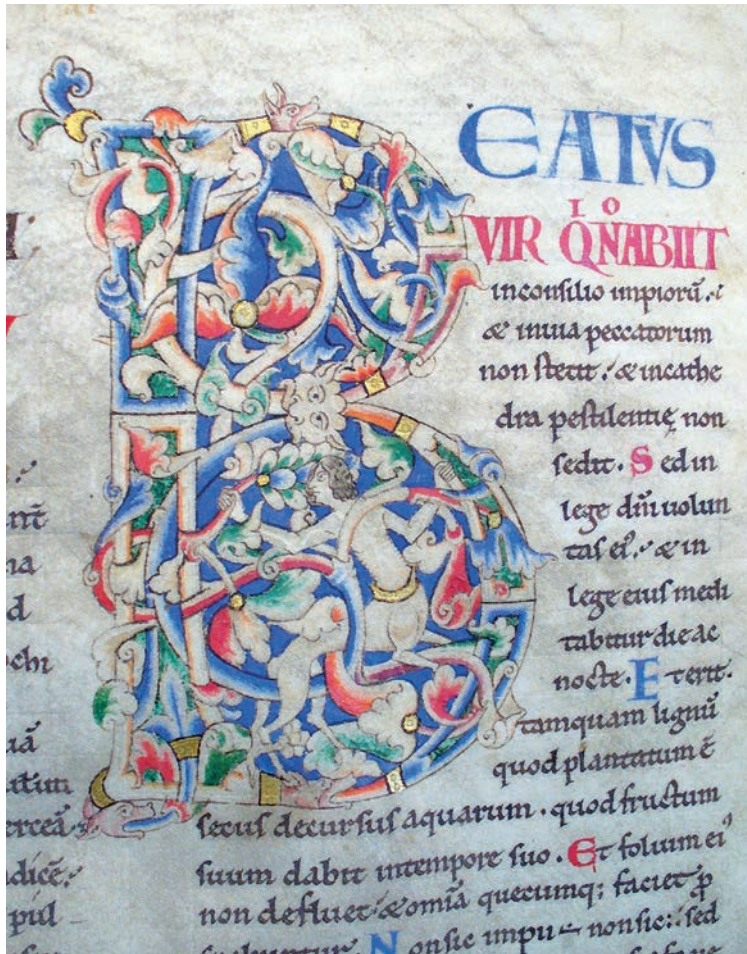 BEATVS
VIR QIO NABIIT
inconsilio impiorū.
& inuia peccatorum
non stetit. & incathe
dra pestilentię non
sedit. Sed in
lege dn̄i uolun
tas ei'. & in
lege eius medi
tabitur die ac
nocte. Et erit
tamquam lignū
quod plantatum ē
secus decursus aquarum. quod fructum
suum dabit intempore suo. Et folium ei'
non defluet. & omīa quecumq; faciet p̄
Non sic impii non sic: sed